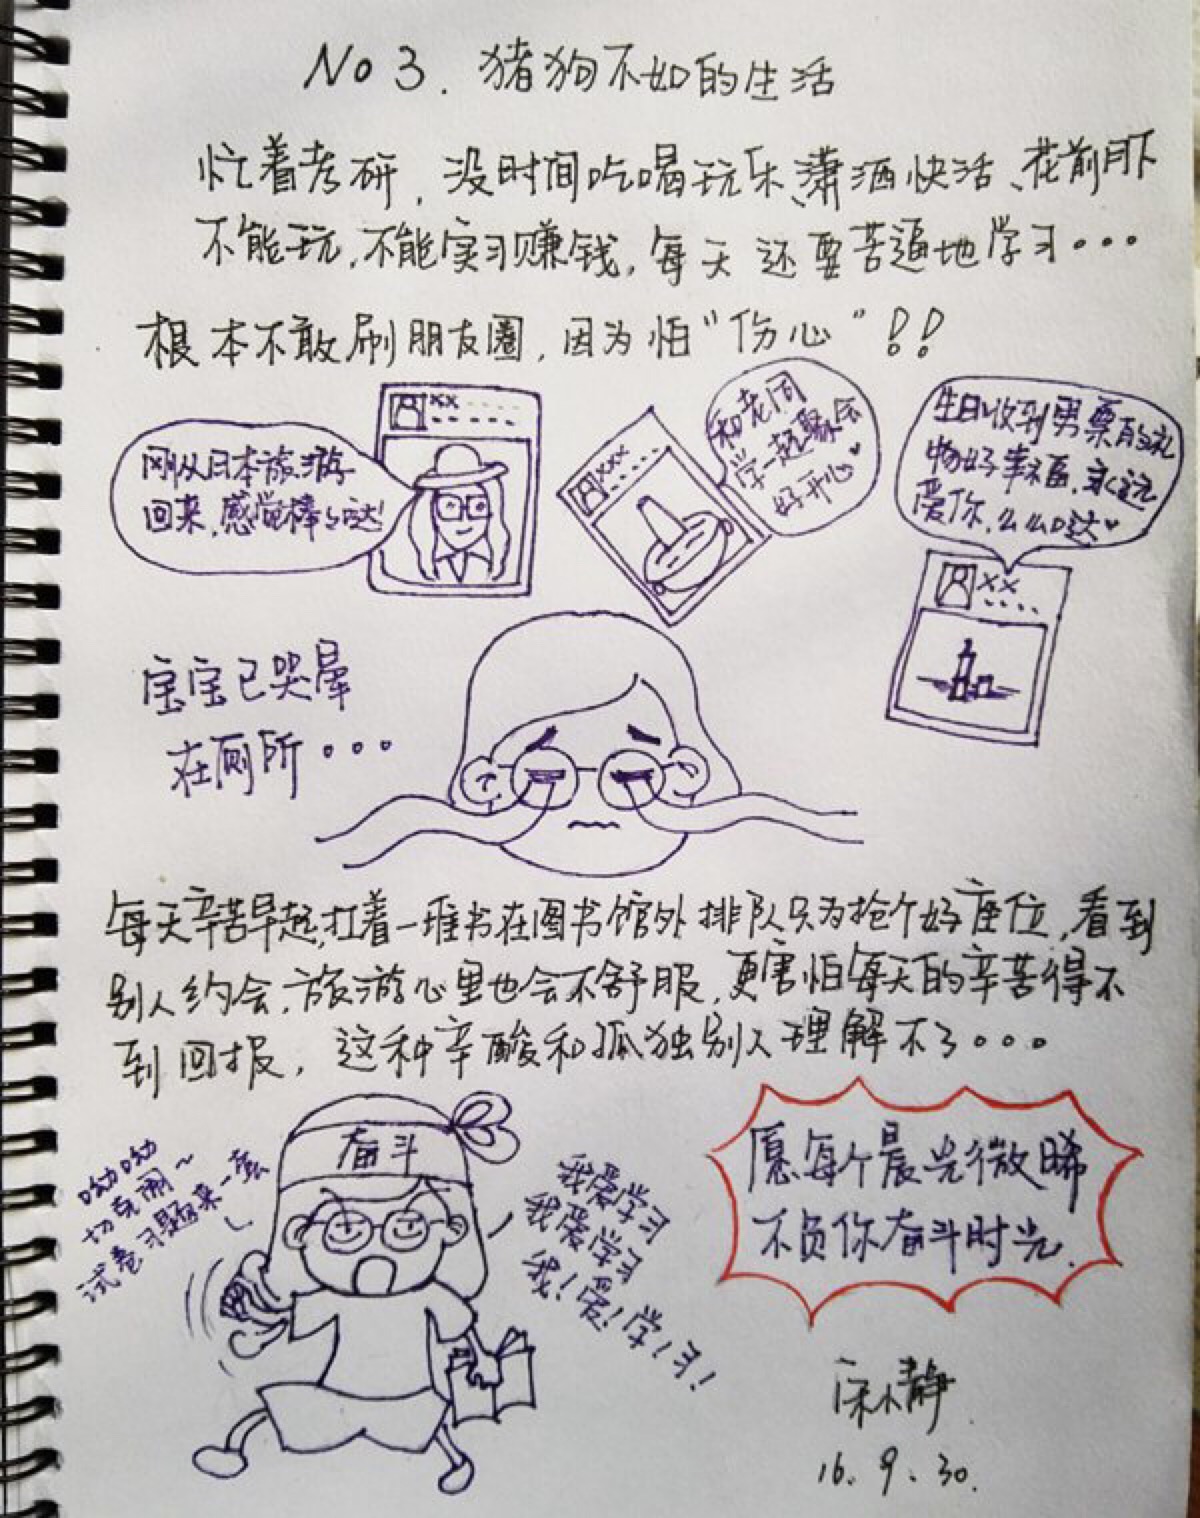 No 3. 猪狗不如的生活
忙着考研，没时间吃喝玩乐、潇洒快活、花前月下
不能玩，不能实习赚钱，每天还要苦逼地学习...
根本不敢刷朋友圈，因为怕“伤心”！！
刚从日本旅游
回来，感觉棒棒哒！
××
×××
和老同
学一起聚会
好开心♥
生日收到男票的礼
物好幸福，永远
爱你，么么哒♥
××
宝宝已哭晕
在厕所...
每天辛苦早起，扛着一堆书在图书馆外排队只为抢个好座位，看到
别人约会，旅游心里也会不舒服，更害怕每天的辛苦得不
到回报，这种辛酸和孤独别人理解不了...
奋斗
呦呦
切克闹～
试卷习题来一套
我爱学习
我爱学习
我！爱！学！习！
愿每个晨光微晞
不负你奋斗时光.
16.9.30.